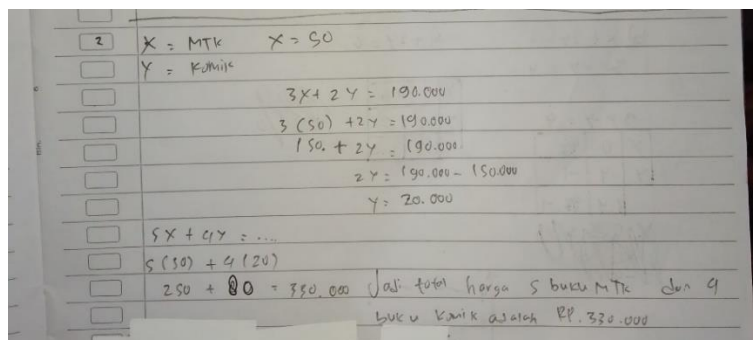 2 X = MTK X = 50
Y = Komik
3X + 2Y = 190.000
3 (50) + 2Y = 190.000
150. + 2Y = 190.000
2Y = 190.000 - 150.000
Y = 20.000
5X + 4Y = ....
5 (50) + 4 (20)
250 + 80 = 330.000 Jadi total harga 5 buku MTK dan 4
buku Komik adalah RP. 330.000